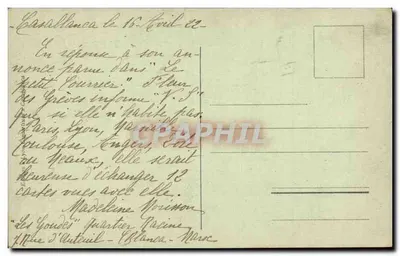 Casablanca le 16 Avril 22
En réponse à son an-
nonce parue dans "Le
Petit Courrier" Fleur
des Grèves informe "K. S"
que, si elle n'habite pas
Paris, Lyon,
Toulouse, Angers,
ou Meaux, elle serait
heureuse d'échanger 12
cartes vues avec elle.
Madeleine
"Les Gondes" Quartier Racine
Rue d'Auteuil - CBlanca - Maroc
CPAPHIL